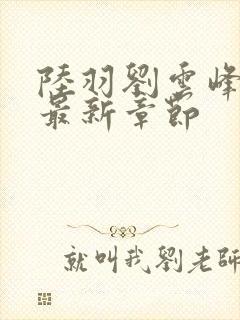 陸羽劉雲峰
最新章節
就叫我劉老師